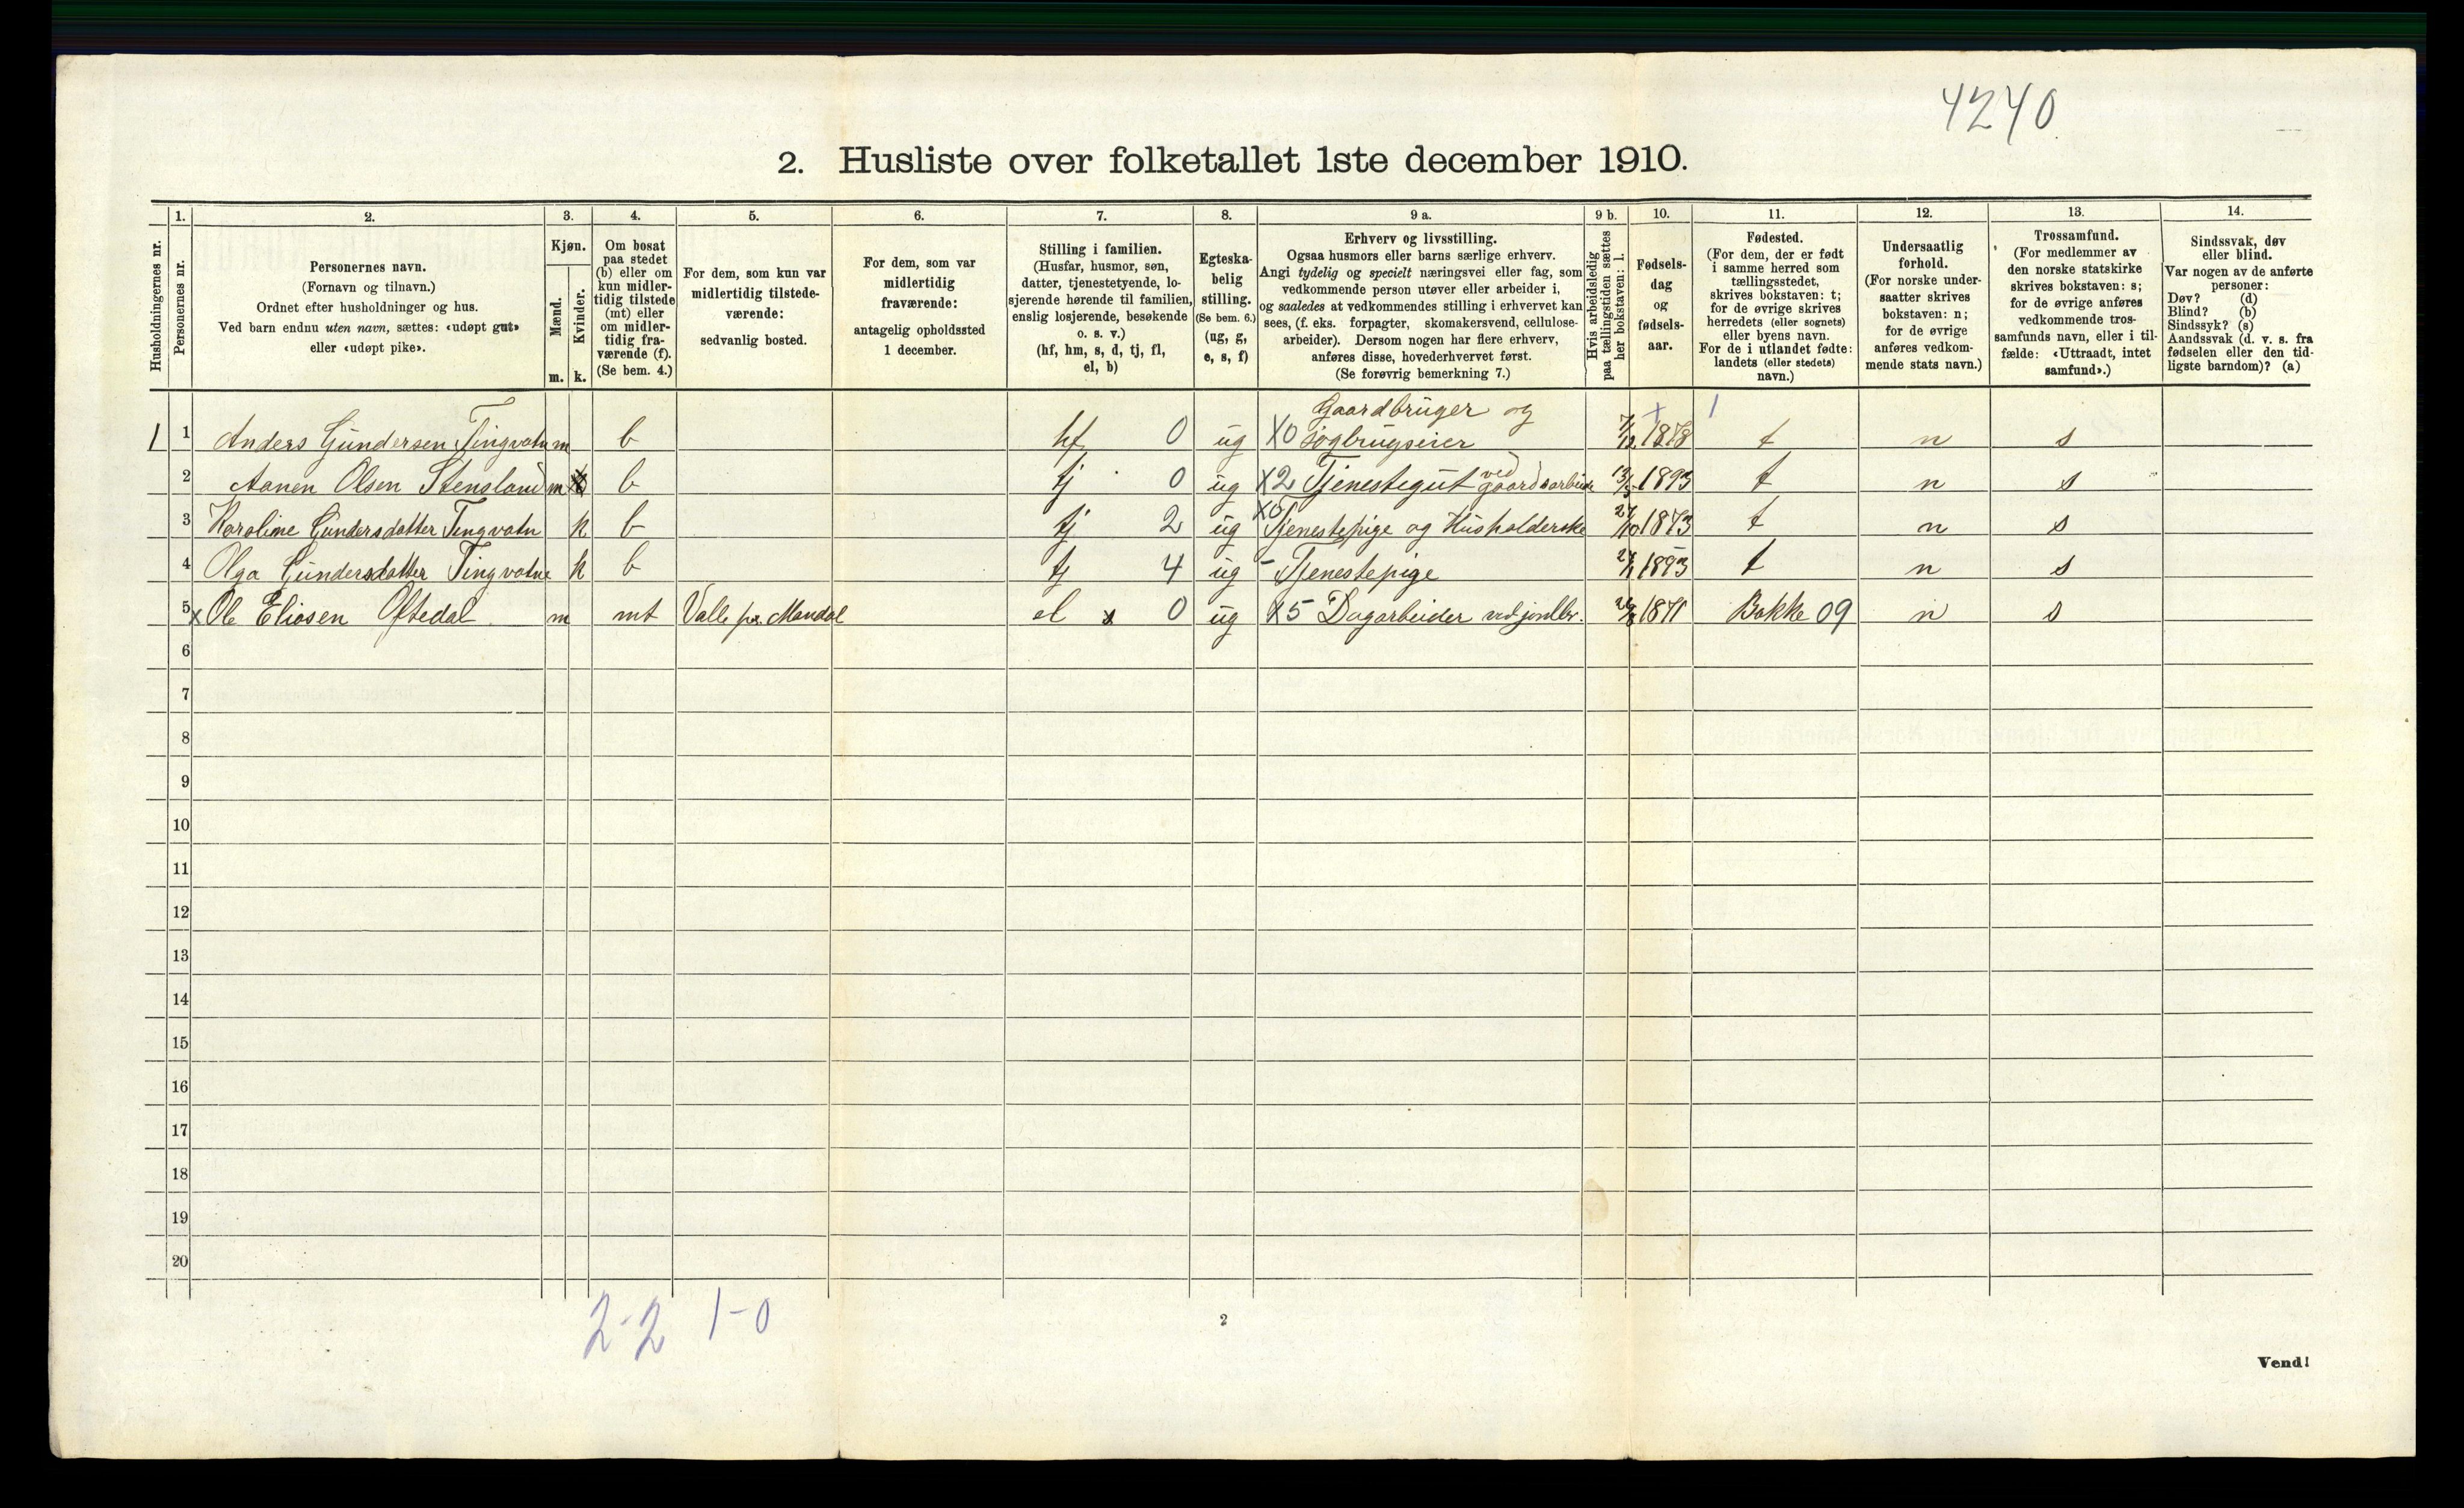 4240
2. Husliste over folketallet 1ste december 1910.
Husholdningernes nr.
1.
Personernes nr.
2.
Personernes navn.
(Fornavn og tilnavn.)
Ordnet efter husholdninger og hus.
Ved barn endnu uten navn, sættes: «udøpt gut»
eller «udøpt pike».
3.
Kjøn.
Mænd.
m.
Kvinder.
k.
4.
Om bosat
paa stedet
(b) eller om
kun midler-
tidig tilstede
(mt) eller
om midler-
tidig fra-
værende (f).
(Se bem. 4.)
5.
For dem, som kun var
midlertidig tilstede-
værende:
sedvanlig bosted.
6.
For dem, som var
midlertidig
fraværende:
antagelig opholdssted
1 december.
7.
Stilling i familien.
(Husfar, husmor, søn,
datter, tjenestetyende, lo-
sjerende hørende til familien,
enslig losjerende, besøkende
o. s. v.)
(hf, hm, s, d, tj, fl,
el, b)
8.
Egteska-
belig
stilling.
(Se bem. 6.)
(ug, g,
e, s, f)
9 a.
Erhverv og livsstilling.
Ogsaa husmors eller barns særlige erhverv.
Angi tydelig og specielt næringsvei eller fag, som
vedkommende person utøver eller arbeider i,
og saaledes at vedkommendes stilling i erhvervet kan
sees, (f. eks. forpagter, skomakersvend, cellulose-
arbeider). Dersom nogen har flere erhverv,
anføres disse, hovederhvervet først.
(Se forøvrig bemerkning 7.)
9 b.
Hvis arbeidsledig
paa tællingstiden sættes
her bokstaven: l.
10.
Fødsels-
dag
og
fødsels-
aar.
11.
Fødested.
(For dem, der er født
i samme herred som
tællingsstedet,
skrives bokstaven: t;
for de øvrige skrives
herredets (eller sognets)
eller byens navn.
For de i utlandet fødte:
landets (eller stedets)
navn.)
12.
Undersaatlig
forhold.
(For norske under-
saatter skrives
bokstaven: n;
for de øvrige
anføres vedkom-
mende stats navn.)
13.
Trossamfund.
(For medlemmer av
den norske statskirke
skrives bokstaven: s;
for de øvrige anføres
vedkommende tros-
samfunds navn, eller i til-
fælde: «Uttraadt, intet
samfund».)
14.
Sindssvak, døv
eller blind.
Var nogen av de anførte
personer:
Døv? (d)
Blind? (b)
Sindssyk? (s)
Aandssvak (d. v. s. fra
fødselen eller den tid-
ligste barndom)? (a)
Gaardbruger og
1 1 Anders Gundersen Tingvatn m b hf 0 ug X0 sogbrugseier 7/12 1878 t n s
2 Aanen Olsen Stensland m b tj 0 ug X2 Tjenestegut ved gaardsarbeide 1893 t n s
3 Karoline Gundersdatter Tingvatn k b tj 2 ug Tjenestepige og Husholderske 27/10 1873 t n s
4 Olga Gundersdatter Tingvatne k b tj 4 ug - Tjenestepige 1893 t n s
5 x Ole Eliasen Oftedal m mt Valle pr. Mandal el x 0 ug X5 Dagarbeider ved jordbr. 1871 Bakke 09 n s
6
7
8
9
10
11
12
13
14
15
16
17
18
19
20
2-2 1-0
2
Vend!